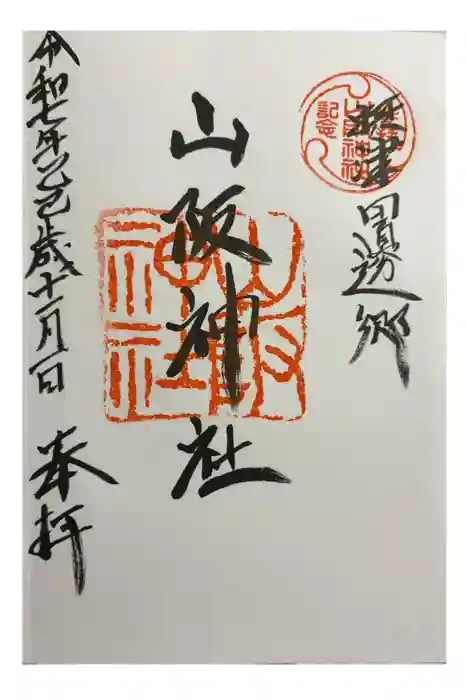 摂津田邊郷
山阪神社
令和七年乙巳歳十一月一日 奉拝
山阪神社
参拝
記念